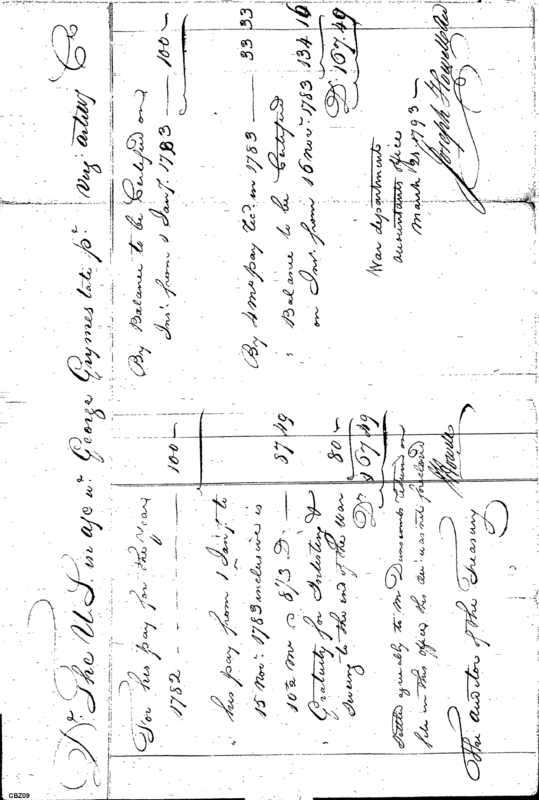 Dr. The U.S. in a/c wt. George Grymes late pt. Virg: Artillery Cr
For his pay for the year
1782 - - - - - 100 -
" his pay from 1 Jany. to
15 Novr. 1783 inclusive is
10½ Mos @ 8⅓ D. — 87 49
Gratuity for Inlisting &
serving to the end of the War 80 -
Ds. 167 49
Settled agreeably to Mr Dunscombs return on
file in this office this
The Auditor of the Treasury
JHowell
By Balance to be Certified on
Int. from 1 Jany. 1783 — 100 -
By 4 Mos pay in 1783 — 33 33
" Balance to be Certified
on Int. from 16 Novr. 1783 134 16
Ds. 167.49
War department
accountants office
March 1793 -
Joseph Howell
CBZ09